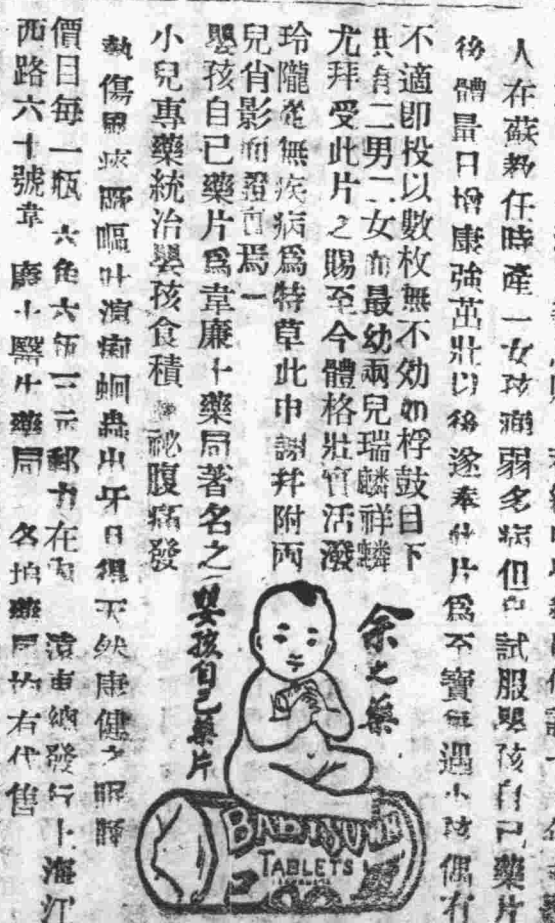 人在蘇教任時產一女孩弱多病但自試服嬰孩自己藥片
後體量日增康強茁壯以後遂奉此片爲至寶每遇小孩偶有
不適即投以數枚無不効如桴鼓目下
共有二男二女而最幼兩兒瑞麟祥麟
尤拜受此片之賜至今體格壯實活潑
玲瓏從無疾病爲特草此申謝幷附兩
兒肖影而證實焉
嬰孩自己藥片爲韋廉士藥局著名之
小兒專藥統治嬰孩食積 祕腹痛發
熱傷風痰厥嘔吐瀉痢蛔蟲出牙且得天然康健之眠睡
價目每一瓶六角六瓶三元郵力在內 遠東總發行上海江
西路六十號韋廉士醫生藥局 各埠藥局均有代售
余之藥
嬰孩自己藥片
BABY'S OWN
TABLETS